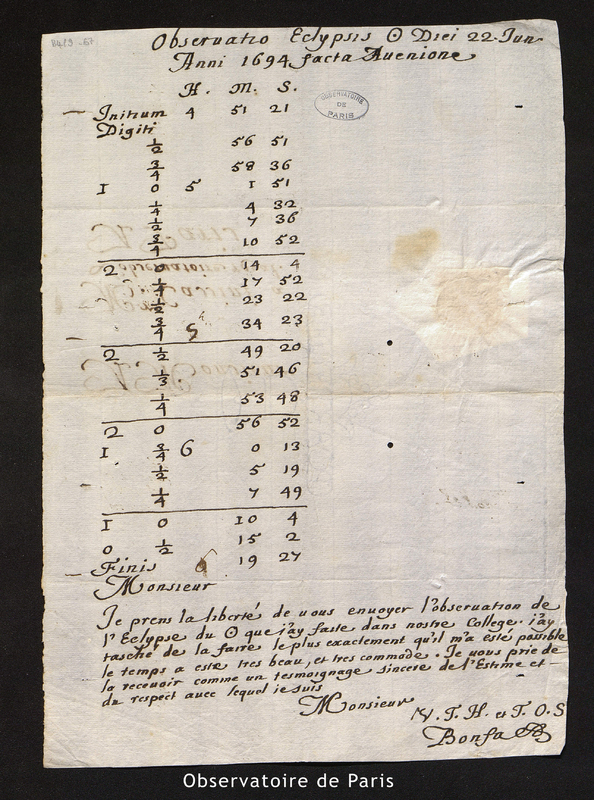 Observatio Eclypsis ☉ Diei 22 Jun
Anni 1694 facta Avenione
H. M. S.
OBSERVATOIRE
DE
PARIS
Initium 4 51 21
Digiti
1/2 56 51
3/4 58 36
1 0 5 1 51
1/4 4 32
1/2 7 36
3/4 10 52
2 14 4
1/4 17 52
1/2 23 22
3/4 5h 34 23
2 1/2 49 20
1/3 51 46
1/4 53 48
2 0 56 52
1 3/4 6 0 13
1/2 5 19
1/4 7 49
1 0 10 4
0 1/2 15 2
Finis 6 19 27
Monsieur
Je prens la liberté de vous envoyer l'observation de
l'Eclypse du ☉ que j'ay faite dans nostre College. j'ay
tasché de la faire le plus exactement qu'il m'a esté possible
le temps a esté tres beau, et tres commode. Je vous prie de
la recevoir comme un tesmoignage sincere de l'Estime et
du respect avec lequel je suis
Monsieur
V. T. H. et T. O. S
Bonfa
Observatoire de Paris